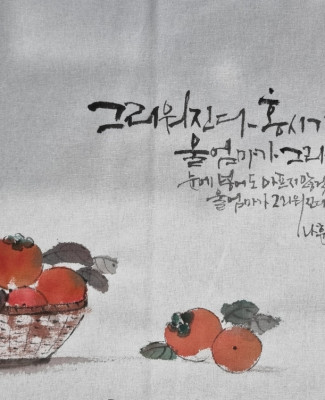 그리워진다 홍시가
울엄마가 그리
눈에 넣어도 아프지 않겠
울엄마가 그리워진다
나훈